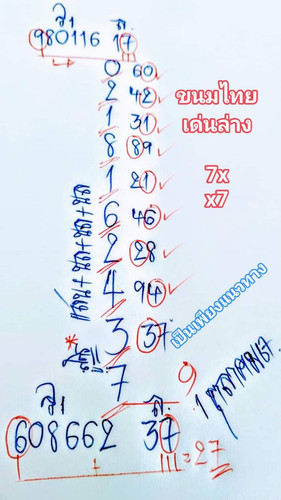 ว1 ล.
980116 17
0 60
2 42
1 31
8 89
1 21
6 46
2 28
4 94
3 37
7
9
ว1 ล.
608662 37
=27
ขนมไทย
เด่นล่าง
7x
x7
เป็นเพียงแนวทาง